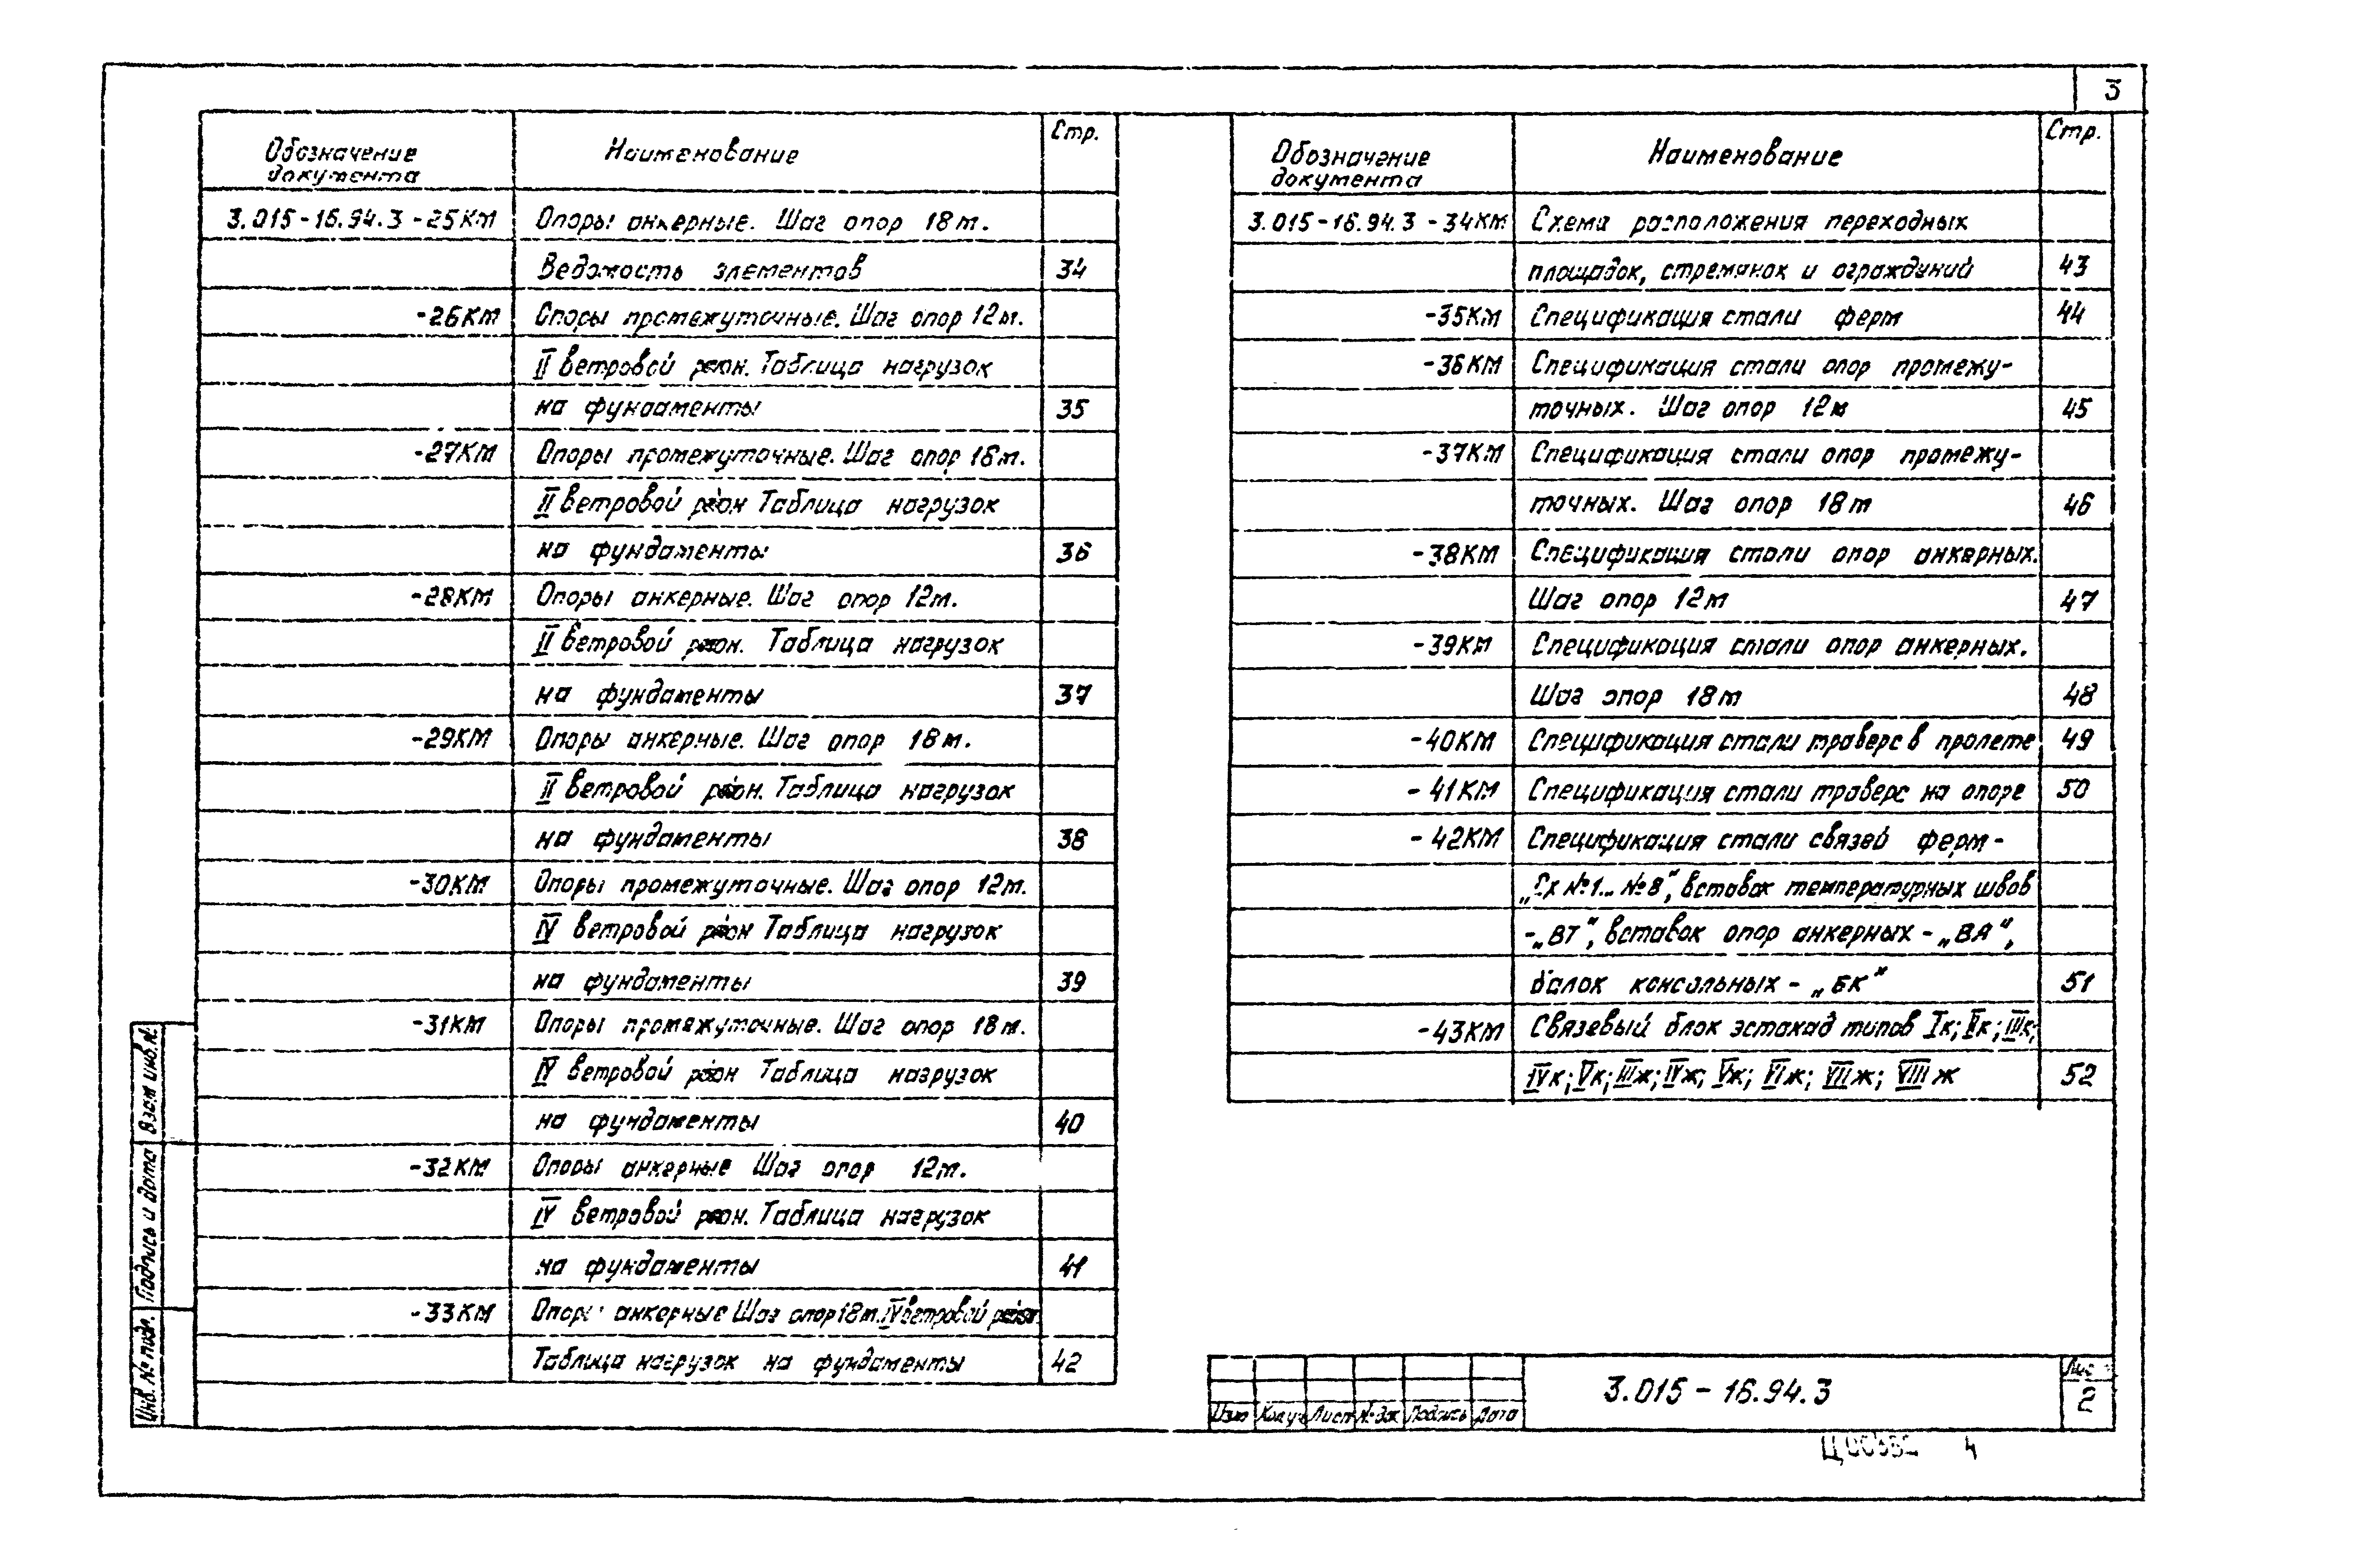 3
Обозначение документа Наименование Стр.
3.015-16.94.3-25КМ Опоры анкерные. Шаг опор 18м.
Ведомость элементов 34
-26КМ Опоры промежуточные. Шаг опор 12м.
II ветровой район. Таблица нагрузок
на фундаменты 35
-27КМ Опоры промежуточные. Шаг опор 18м.
II ветровой район Таблица нагрузок
на фундаменты 36
-28КМ Опоры анкерные. Шаг опор 12м.
II ветровой район. Таблица нагрузок
на фундаменты 37
-29КМ Опоры анкерные. Шаг опор 18м.
II ветровой район. Таблица нагрузок
на фундаменты 38
-30КМ Опоры промежуточные. Шаг опор 12м.
IV ветровой район Таблица нагрузок
на фундаменты 39
-31КМ Опоры промежуточные. Шаг опор 18м.
IV ветровой район Таблица нагрузок
на фундаменты 40
-32КМ Опоры анкерные Шаг опор 12м.
IV ветровой район. Таблица нагрузок
на фундаменты 41
-33КМ Опоры анкерные Шаг опор 18м. IV ветровой район.
Таблица нагрузок на фундаменты 42
Обозначение документа Наименование Стр.
3.015-16.94.3-34КМ Схема расположения переходных
площадок, стремянок и ограждений 43
-35КМ Спецификация стали ферм 44
-36КМ Спецификация стали опор промежу-
точных. Шаг опор 12м 45
-37КМ Спецификация стали опор промежу-
точных. Шаг опор 18м 46
-38КМ Спецификация стали опор анкерных.
Шаг опор 12м 47
-39КМ Спецификация стали опор анкерных.
Шаг опор 18м 48
-40КМ Спецификация стали траверс в пролете 49
-41КМ Спецификация стали траверс на опоре 50
-42КМ Спецификация стали связей ферм-
„Сх №1... №8“, вставок температурных швов
-„ВТ“, вставок опор анкерных-„ВА“,
балок консольных-„БК“ 51
-43КМ Связевый блок эстакад типов Iк; IIк; IIIк;
IVк; Vк; IIIж; IVж; Vж; VIж; VIIж; VIIIж 52
Взам инв.№
Подпись и дата
Инв. № подл.
Изм Кол.уч Лист № док Подпись Дата
3.015-16.94.3
Лист
2
4